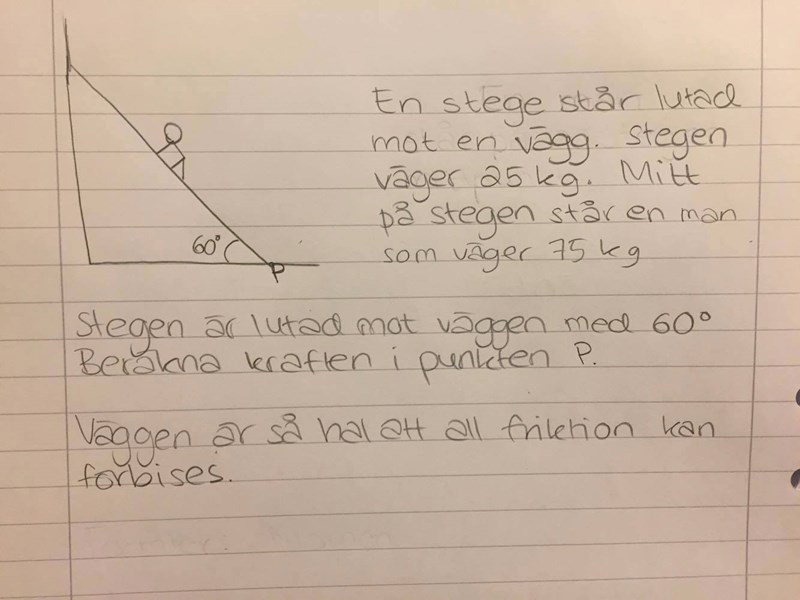 En stege står lutad
mot en vägg. Stegen
väger 25 kg. Mitt
på stegen står en man
som väger 75 kg
60°
P
Stegen är lutad mot väggen med 60°
Beräkna kraften i punkten P.
Väggen är så hal att all friktion kan
förbises.